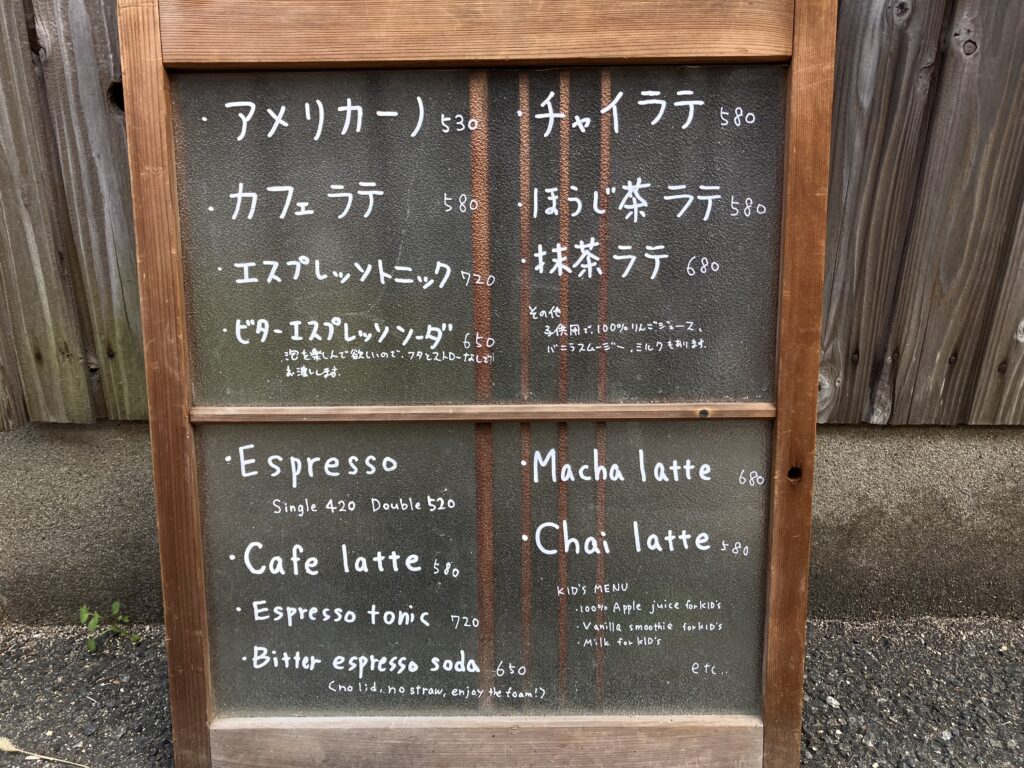 ・アメリカーノ 530
・カフェラテ 580
・エスプレッソトニック 720
・ビターエスプレッソソーダ 650
泡を楽しんで欲しいので、フタとストローなしで
お渡しします。
・チャイラテ 580
・ほうじ茶ラテ 580
・抹茶ラテ 680
その他
子供用で、100%りんごジュース、
バニラスムージー、ミルクもあります。
・Espresso
Single 420 Double 520
・Cafe latte 580
・Espresso tonic 720
・Bitter espresso soda 650
(no lid, no straw, enjoy the foam!)
・Macha latte 680
・Chai latte 580
KID'S MENU
・100% Apple juice for KID's
・Vanilla smoothie for KID's
・Milk for KID's
etc..